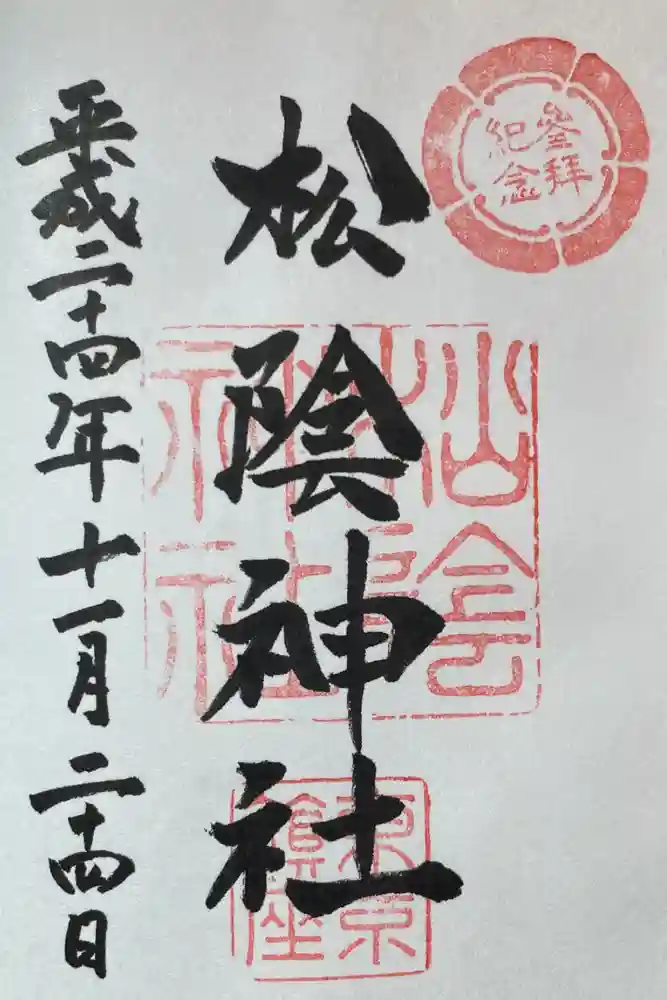 參拜
紀念
松陰神社
松陰
神社
東京
鎮座
平成二十四年十一月二十四日